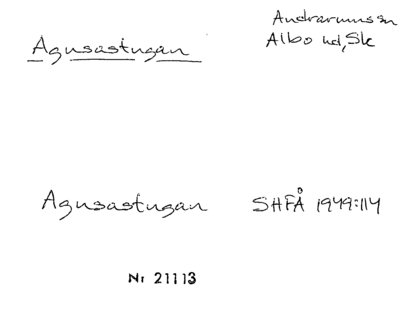 Andrarums sn
Agusastugan
Albo hd, Sk
Agusastugan SHFÅ 1949:114
Nr 21113